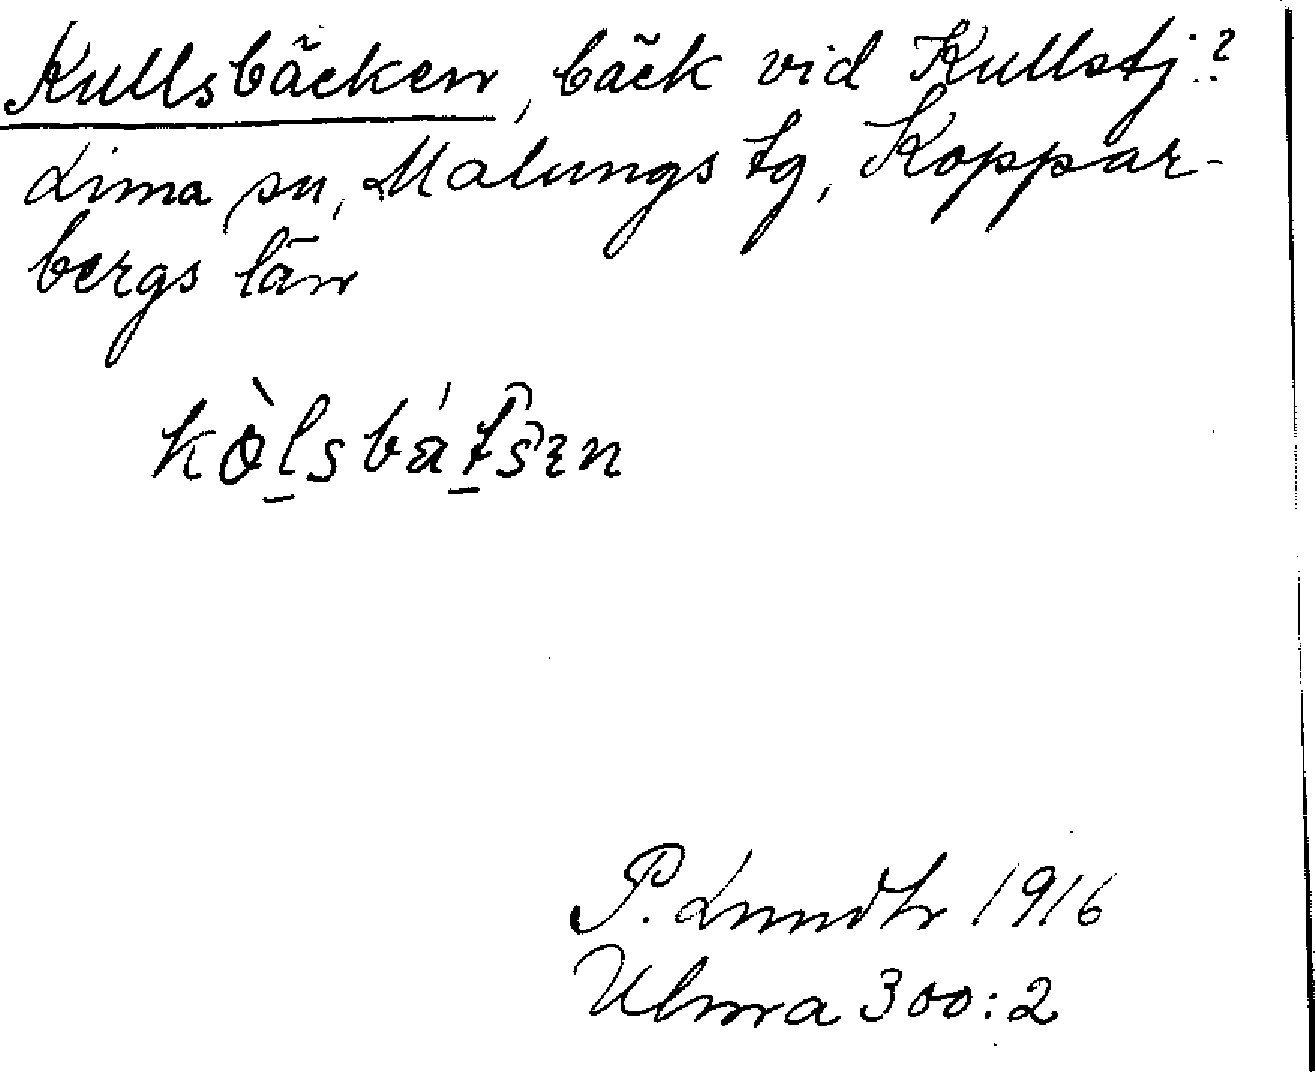 Kullsbäcken, bäck vid Kullstj.?
Lima sn, Malungs tg, Koppar-
bergs län
kò̱lsbáṯsɛn
P. Lundh 1916
Ulma 300:2